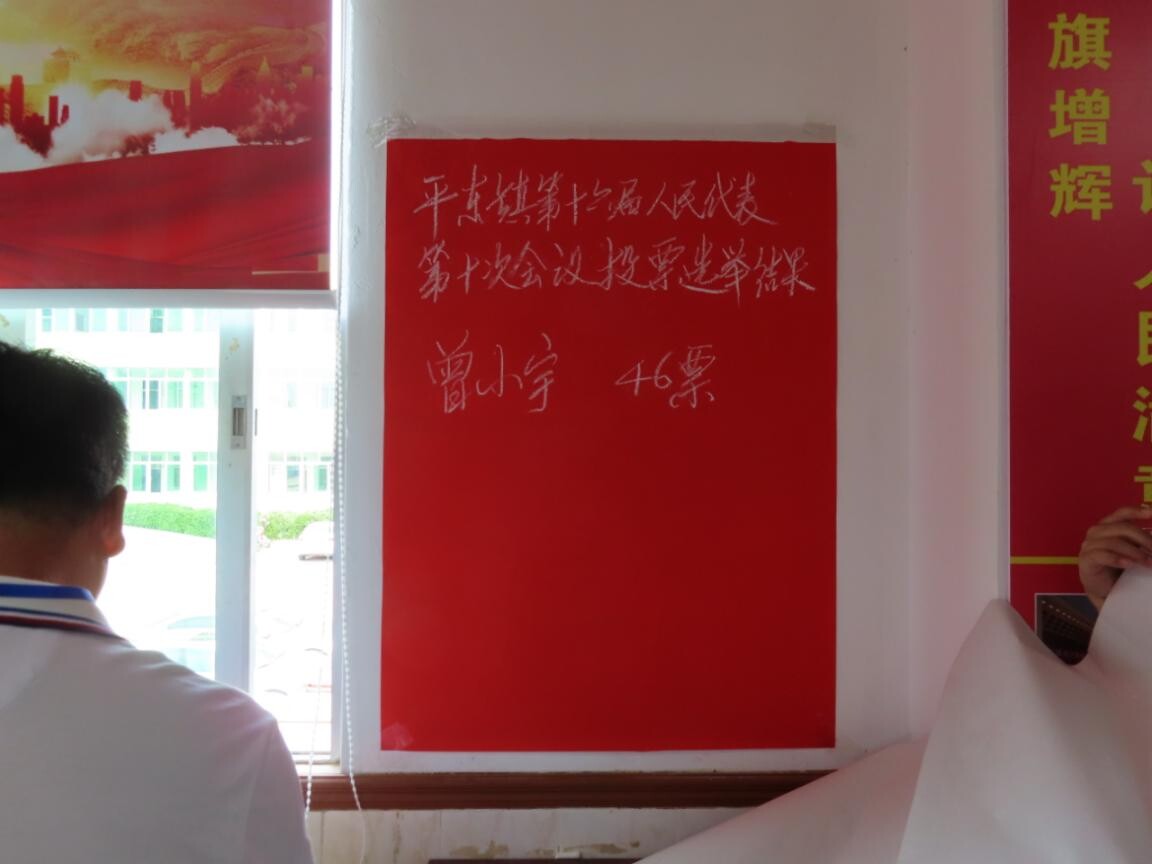 平东镇第十六届人民代表
第十次会议投票选举结果
曾小宇 46票
旗增辉
人民满意